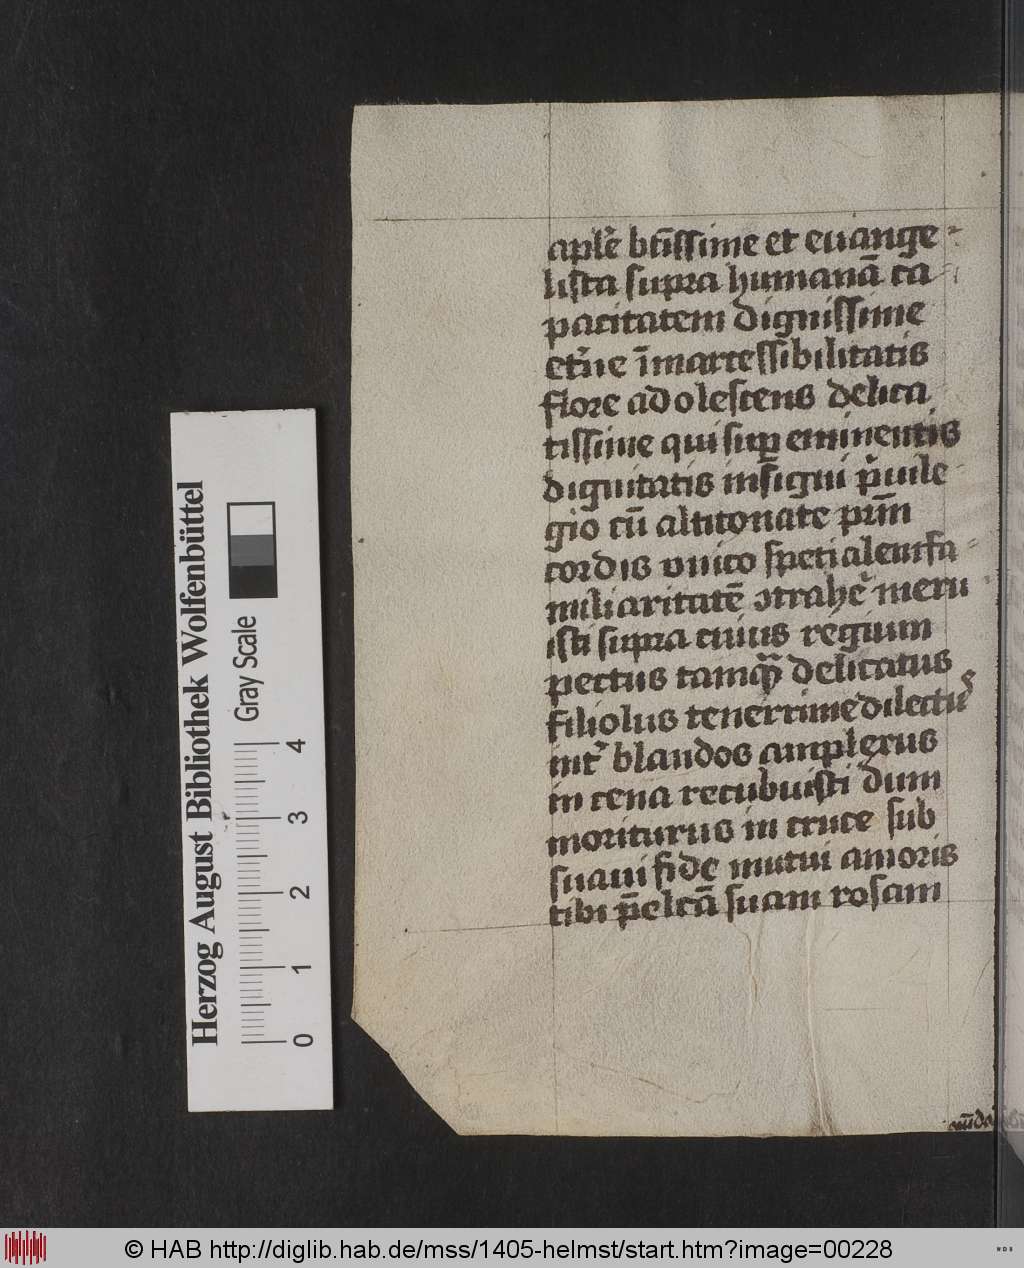 aplē btīssime et euange-
lista supra humanā ca
pacitatem dignissime
et'ne īmarcessibilitatis
flore adolescens delica
tissime qui sup eminentis
dignitatis insigni p'uile-
gio cū altitonāte prīm
cordis vnico specialem fa-
miliaritatē ꝯtrahe' meru-
isti supra cuius regium
pectus tamqͣ delicatus
filiolus tenerrime dilectus
int' blandos amplexus
in cena recubuisti dum
moriturus in cruce sub
suaui fide mutui amoris
tibi p̄elcā suam rosam
Herzog August Bibliothek Wolfenbüttel
Gray Scale
0 1 2 3 4
© HAB http://diglib.hab.de/mss/1405-helmst/start.htm?image=00228